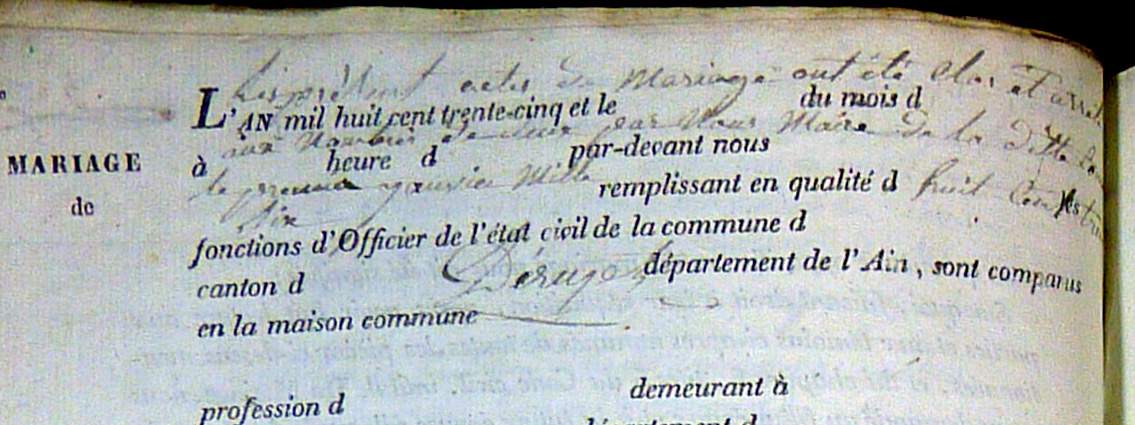 Les présent actes de Mariage ont été clos et arrêté
L'AN mil huit cent trente-cinq et le du mois d
aux Nombre de deux par Nous Maire de la ditte
à heure d par-devant nous
MARIAGE
le premier janvier Mille huit cent
remplissant en qualité d les
de
Six
fonctions d'Officier de l'état civil de la commune d
canton d département de l'Ain, sont comparus
en la maison commune
demeurant à
profession d
département d